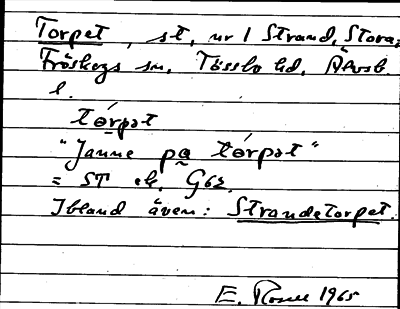 Torpet, st, nr 1 Strand, Stora,
Fröskogs sn, Tössbo hd, Älvsb.
l.
tórpət
"Janne pa tórpət"
= ST ek. G62.
Ibland även: Strandetorpet.
E. 1965